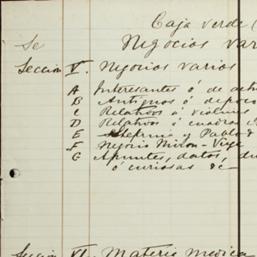 Caja verde (
Se Negocios var
Sección V. Negocios varios
A Interesantes ó de actu
B Antiguos ó depoca
C Relativos á violines
D Relativos á cuadros
E y Pablo
F Negocio
G Apuntes, datos, du
ó curiosas &c
Sección VI. Materia medica